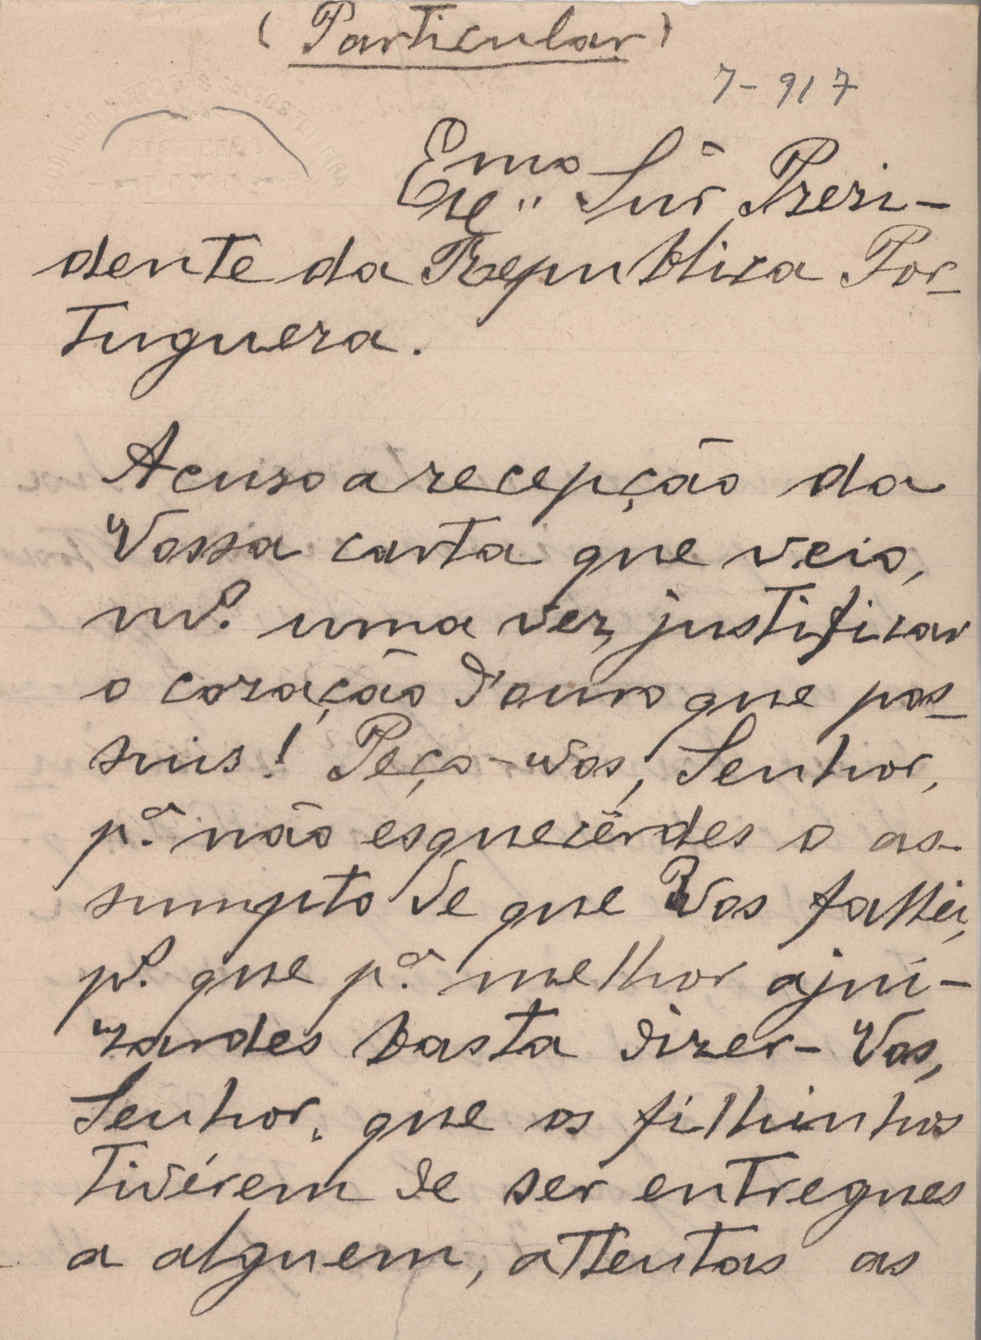 (Particular)
7-917
Exmo Snr Prezi-
dente da Republica Por-
tugueza.
Acuso a recepção da
Vossa carta que veio,
mo. uma vez, justificar
o coração d'ouro que pos-
suis! Peço-vos, Senhor,
pa. não esquecêrdes o as-
sumpto de que Vos fallei,
po. que pa. melhor ajui-
zardes basta dizer-Vos,
Senhor, que os filhinhos
tivérem de ser entregues
a alguem, attentas as